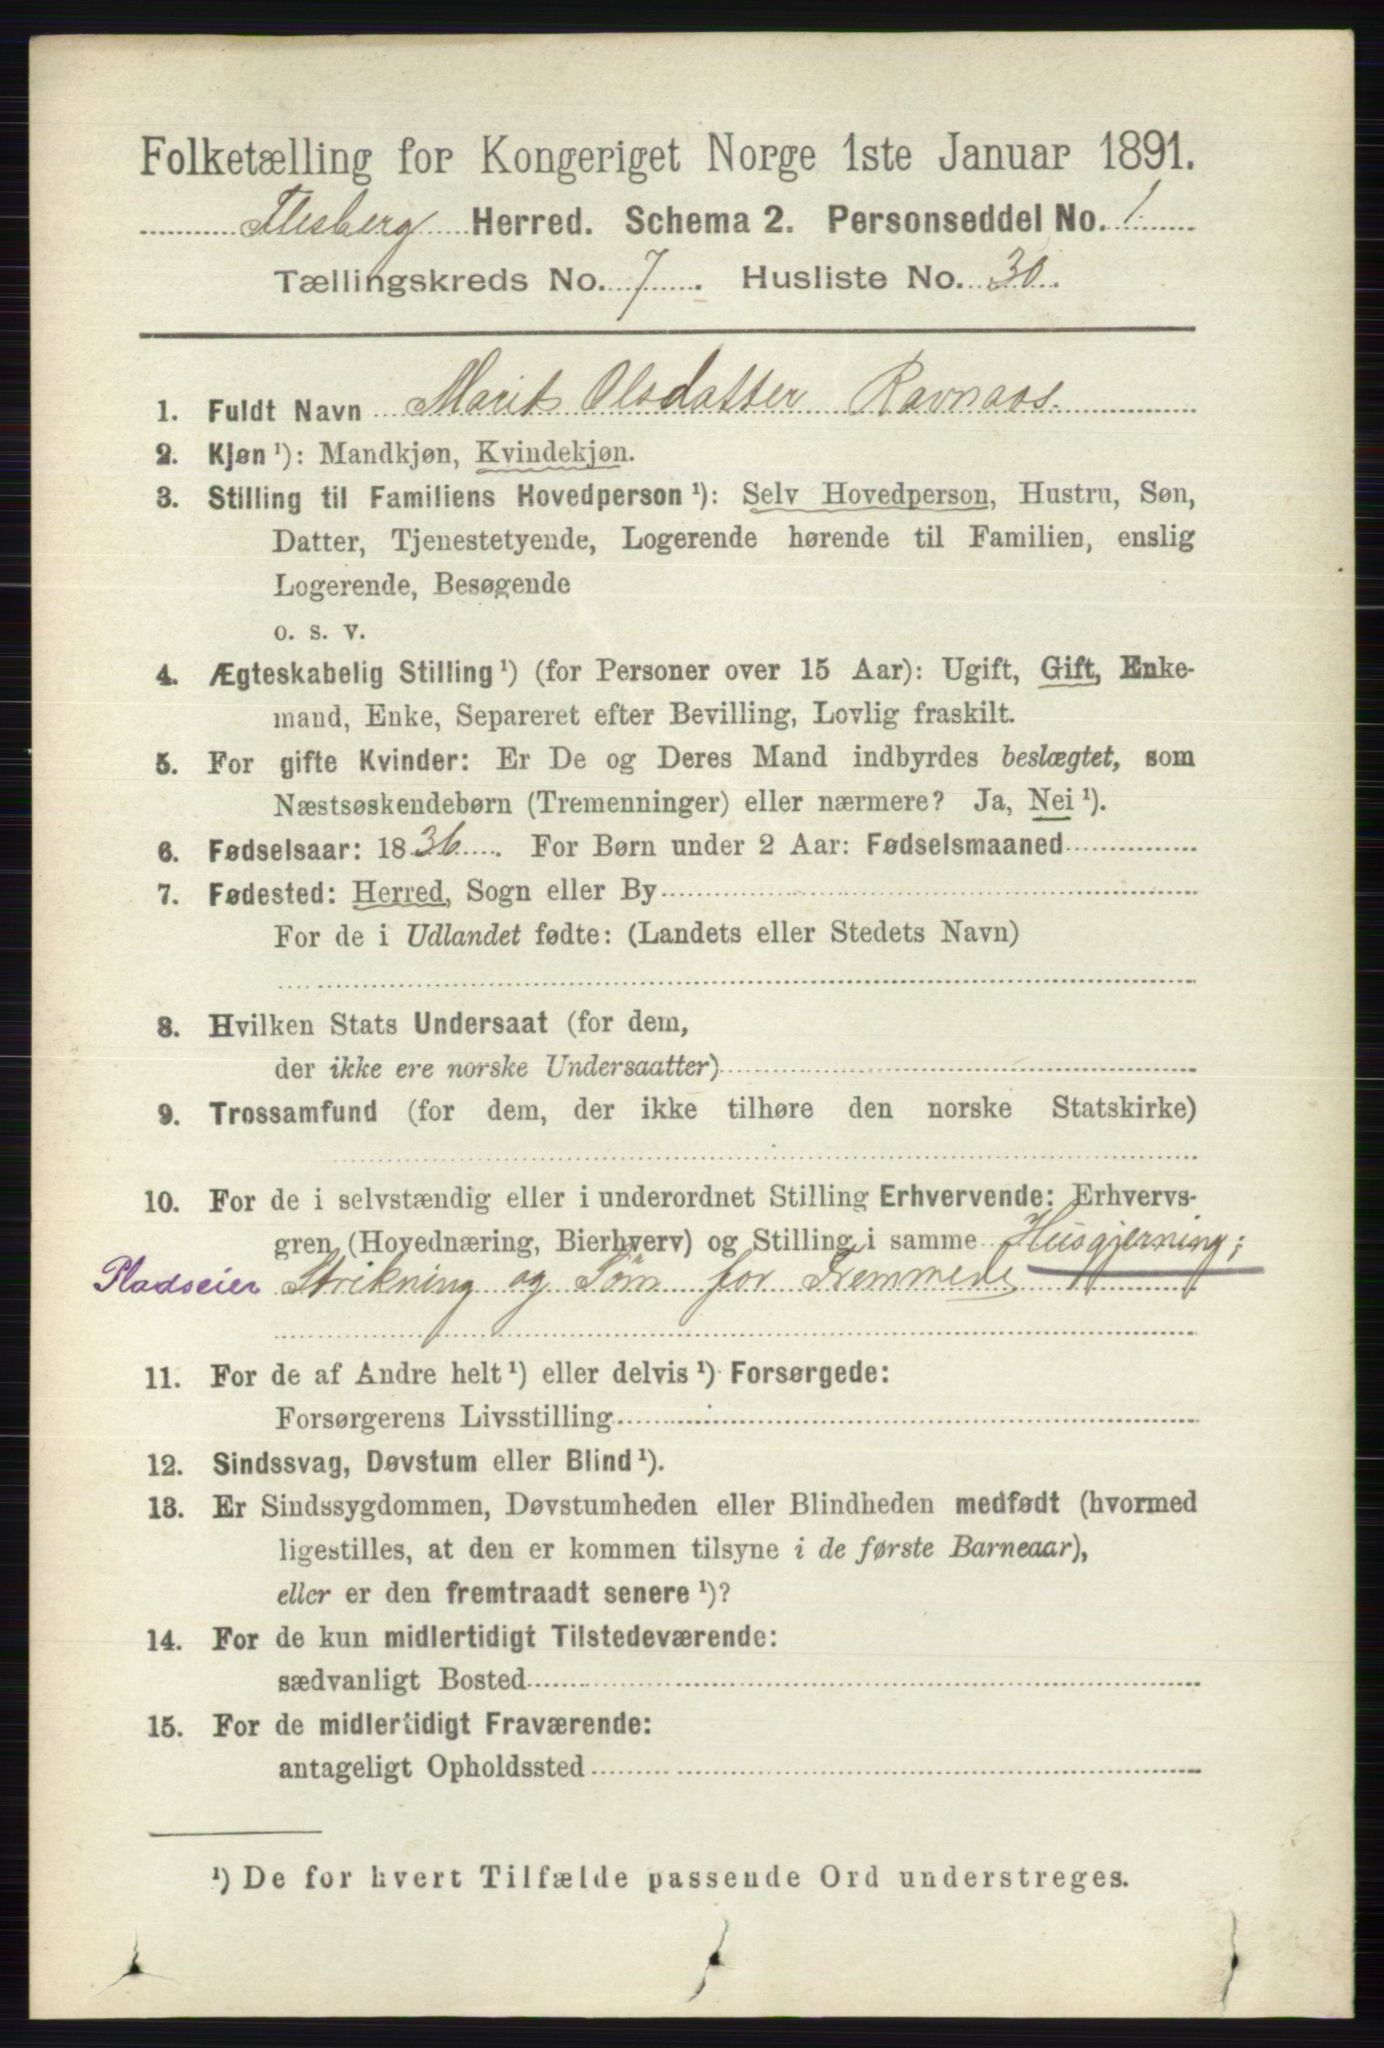 Folketælling for Kongeriget Norge 1ste Januar 1891.
Flesberg Herred. Schema 2. Personseddel No. 1
Tællingskreds No. 7. Husliste No. 30.
1. Fuldt Navn Marit Olsdatter Ravnaas.
2. Kjøn ¹): Mandkjøn, Kvindekjøn.
3. Stilling til Familiens Hovedperson ¹): Selv Hovedperson, Hustru, Søn,
Datter, Tjenestetyende, Logerende hørende til Familien, enslig
Logerende, Besøgende
o. s. v.
4. Ægteskabelig Stilling ¹) (for Personer over 15 Aar): Ugift, Gift, Enke-
mand, Enke, Separeret efter Bevilling, Lovlig fraskilt.
5. For gifte Kvinder: Er De og Deres Mand indbyrdes beslægtet, som
Næstsøskendebørn (Tremenninger) eller nærmere? Ja, Nei ¹).
6. Fødselsaar: 1836. For Børn under 2 Aar: Fødselsmaaned
7. Fødested: Herred, Sogn eller By
For de i Udlandet fødte: (Landets eller Stedets Navn)
8. Hvilken Stats Undersaat (for dem,
der ikke ere norske Undersaatter)
9. Trossamfund (for dem, der ikke tilhøre den norske Statskirke)
10. For de i selvstændig eller i underordnet Stilling Erhvervende: Erhvervs-
gren (Hovednæring, Bierhverv) og Stilling i samme Husgjerning;
Pladseier Strikning og Søm for Fremmede
11. For de af Andre helt ¹) eller delvis ¹) Forsørgede:
Forsørgerens Livsstilling
12. Sindssvag, Døvstum eller Blind ¹).
13. Er Sindssygdommen, Døvstumheden eller Blindheden medfødt (hvormed
ligestilles, at den er kommen tilsyne i de første Barneaar),
eller er den fremtraadt senere ¹)?
14. For de kun midlertidigt Tilstedeværende:
sædvanligt Bosted
15. For de midlertidigt Fraværende:
antageligt Opholdssted
¹) De for hvert Tilfælde passende Ord understreges.